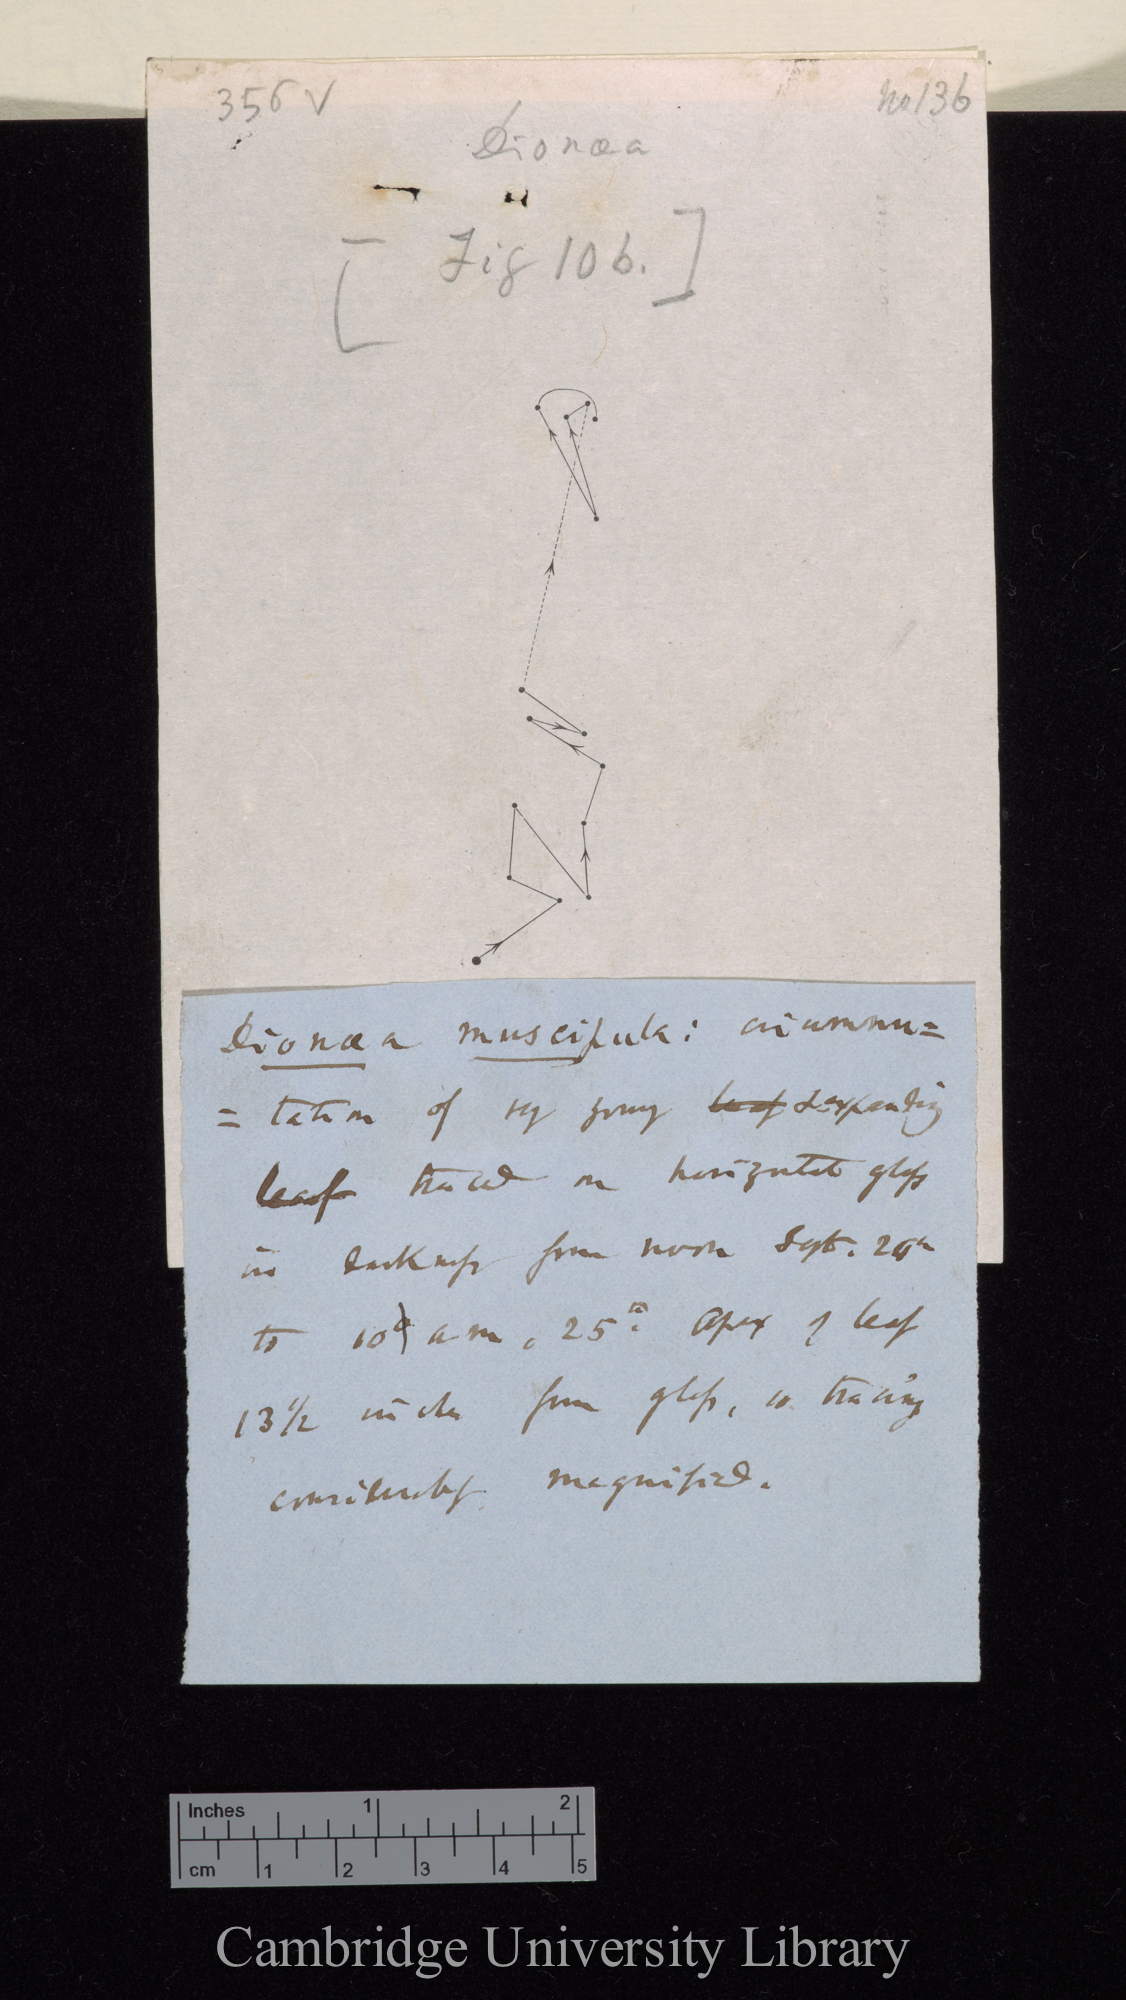 356 V
no 136
Dionæa
[ Fig 106. ]
Dionæa muscipula: circumnu=
=tation of young leaf & expanding
leaf traced on horizontal glass
in darkness from noon Sept. 24th
to 10 a m, 25th. Apex of leaf
13 1/2 inches from glass, so tracing
considerably magnified.
Inches 1 2
cm 1 2 3 4 5
Cambridge University Library